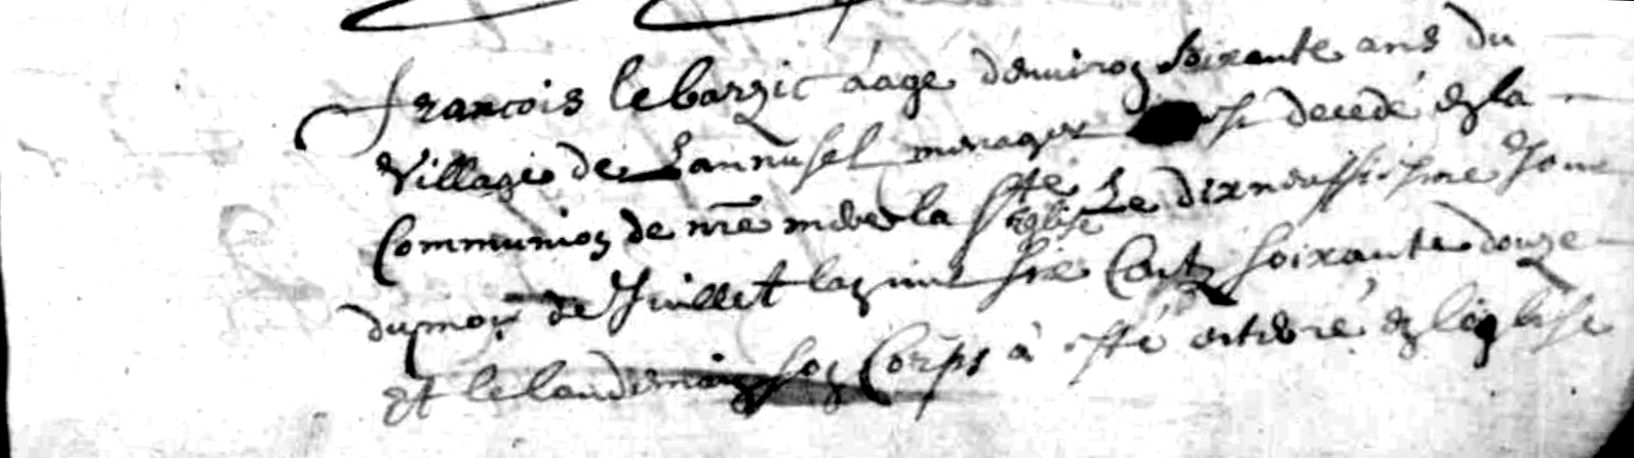 francois lebarzic áagé d'enuiron soixante ans du
village de Lannusel menager est decedé en la
Communion de nre mere la Ste Eglise Le dixneuffisme Jour
du mois de Juillet lan mil six Cent soixante douze
et le landemain son Corps à esté enterré en leglise